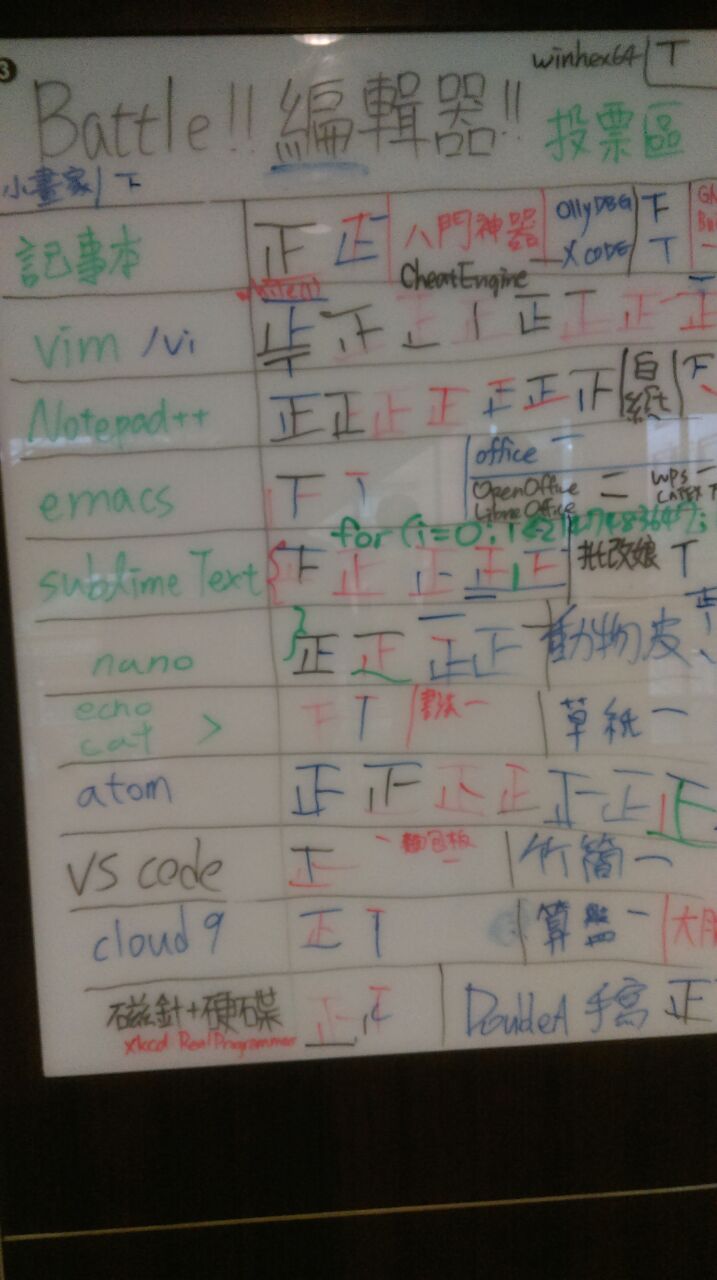 3
winhex64 丅
Battle!! 編輯器!! 投票區
小畫家 下
記事本 正 正 八門神器 OllyDBG 下
CheatEngine XCODE 丅
vim /vi 正 正 正 正 正 正 正
Notepad++ 正 正 正 正 正 正 正 自組 下
emacs 下 丅 office 一
OpenOffice 二 WPS 一
LibreOffice LATEX 下
for (i=0; i<2147483647;
sublime Text { 正 正 正 正 正 批改娘 丅
nano } 正 正 正 正 動物皮
echo
cat > 下 丅 書法 一 草紙 一
atom 正 正 正 正 正 正 正
VS code 正 一 麵包板 一 竹簡 一
cloud 9 正 丅 算盤 一
磁針+硬碟 正 DoubleA 手寫 正
xkcd Real Programmer